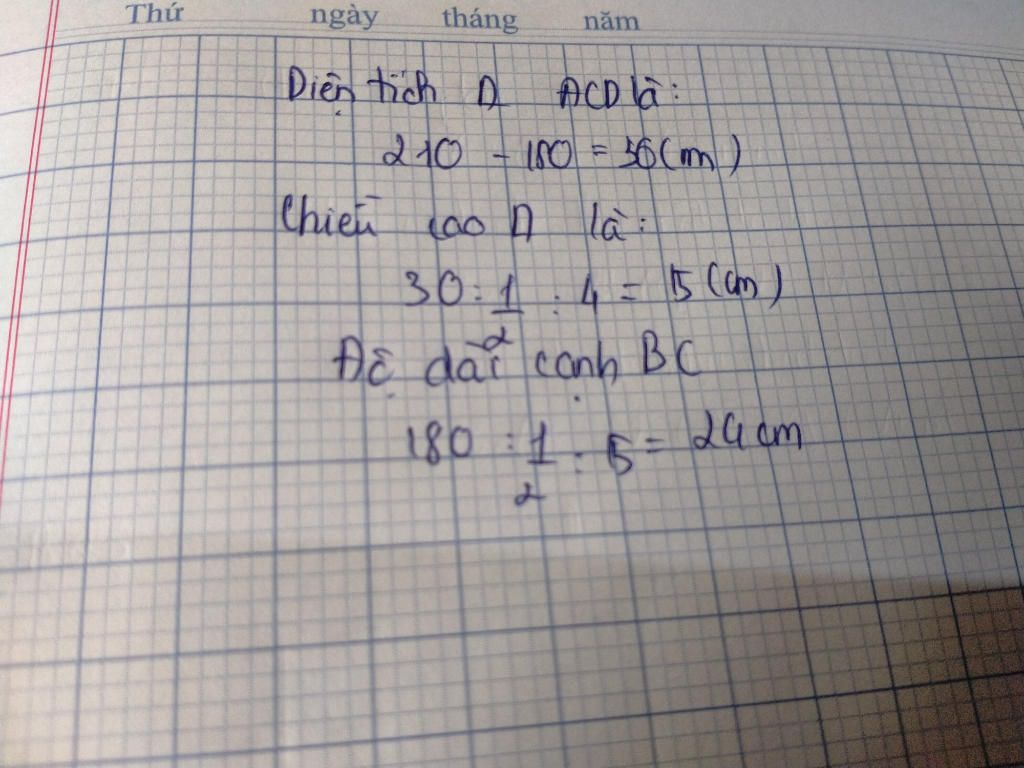 Thứ ngày tháng năm
Diện tích Δ ACD là:
210 - 180 = 30 (cm)
Chiều cao Δ là:
30 : 1/2 : 4 = 15 (cm)
Độ dài cạnh BC
180 : 1/2 : 15 = 24 cm